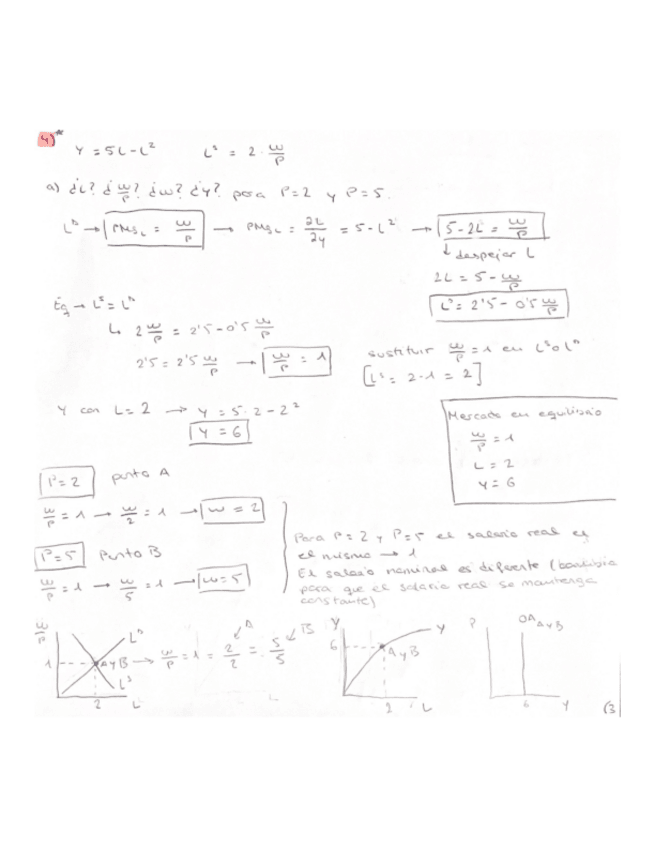 4)*
Y = 5L - L²    Lˢ = 2 · W/P
a) ¿L? ¿W/P? ¿W? ¿Y? para P=2 y P=5.
Lᴰ → PMgL = W/P → PMgL = 2L/2y = 5 - L² → 5 - 2L = W/P
↓ despejar L
2L = 5 - W/P
Lᴰ = 2'5 - 0'5 W/P
Eq → Lˢ = Lᴰ
↳ 2 W/P = 2'5 - 0'5 W/P
2'5 = 2'5 W/P → W/P = 1
sustituir W/P = 1 en Lˢ o Lᴰ
[Lˢ = 2·1 = 2]
Y con L = 2 → Y = 5·2 - 2²
Y = 6
Mercado en equilibrio
W/P = 1
L = 2
Y = 6
P = 2 punto A
W/P = 1 → W/2 = 1 → W = 2
P = 5 Punto B
W/P = 1 → W/5 = 1 → W = 5
Para P = 2 y P = 5 el salario real es
el mismo → 1
El salario nominal es diferente (
para que el salario real se mantenga
constante)
W/P
1
Lᴰ
A y B → W/P = 1 = 2/2 = 5/5
A
B
Lˢ
2 L
Y
6
Y
A y B
2 L
P
OA A y B
6 Y
(3